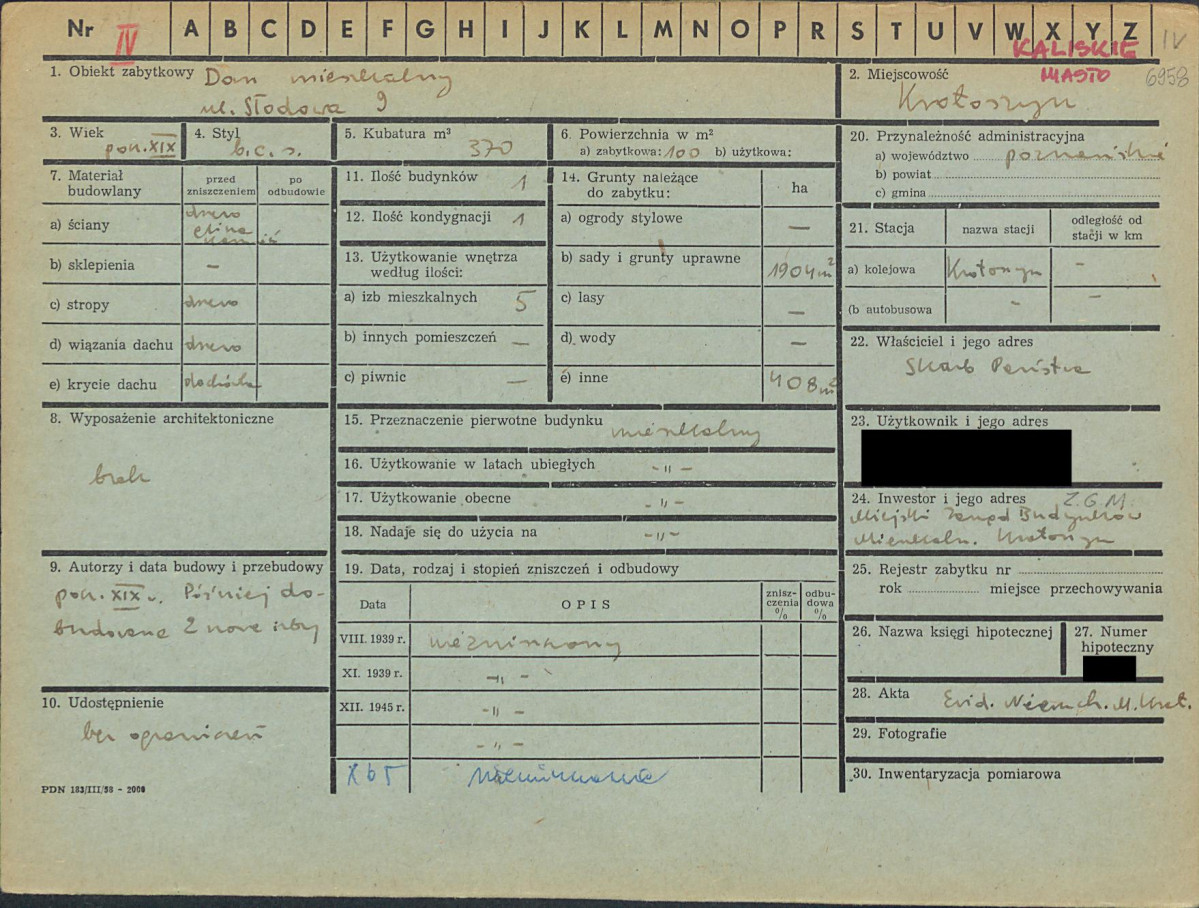 Nr IV A B C D E F G H I J K L M N O P R S T U V W X Y Z IV
KALISKIE
MIASTO 6958
1. Obiekt zabytkowy Dom mieszkalny
ul. Słodowa 9
2. Miejscowość
Krotoszyn
3. Wiek
poł. XIX
4. Styl
b. c. s.
5. Kubatura m³
370
6. Powierzchnia w m²
a) zabytkowa: 100 b) użytkowa:
7. Materiał budowlany
przed zniszczeniem
po odbudowie
a) ściany drewno glina
b) sklepienia –
c) stropy drewno
d) wiązania dachu drewno
e) krycie dachu dachówka
8. Wyposażenie architektoniczne
brak
9. Autorzy i data budowy i przebudowy
poł. XIX w. Później do-
budowane 2 nowe izby
10. Udostępnienie
bez ograniczeń
PDN 183/III/58 - 2000
11. Ilość budynków 1
12. Ilość kondygnacji 1
13. Użytkowanie wnętrza
według ilości:
a) izb mieszkalnych 5
b) innych pomieszczeń –
c) piwnic –
14. Grunty należące
do zabytku:
ha
a) ogrody stylowe –
b) sady i grunty uprawne 1904 m²
c) lasy –
d) wody –
e) inne 408 m²
15. Przeznaczenie pierwotne budynku mieszkalny
16. Użytkowanie w latach ubiegłych - „ -
17. Użytkowanie obecne - „ -
18. Nadaje się do użycia na - „ -
19. Data, rodzaj i stopień zniszczeń i odbudowy
Data
OPIS
znisz-
czenia
%
odbu-
dowa
%
VIII. 1939 r. niezniszczony
XI. 1939 r. - „ -
XII. 1945 r. - „ -
- „ -
X 65
20. Przynależność administracyjna
a) województwo poznańskie
b) powiat
c) gmina
21. Stacja
nazwa stacji
odległość od
stacji w km
a) kolejowa Krotoszyn –
(b autobusowa – –
22. Właściciel i jego adres
Skarb Państwa
23. Użytkownik i jego adres
24. Inwestor i jego adres Z.G.M.
Miejski Zarząd Budynków
Mieszkaln. Krotoszyn
25. Rejestr zabytku nr
rok miejsce przechowywania
26. Nazwa księgi hipotecznej
27. Numer
hipoteczny
28. Akta Ewid. Nieruch. M. Krot.
29. Fotografie
30. Inwentaryzacja pomiarowa